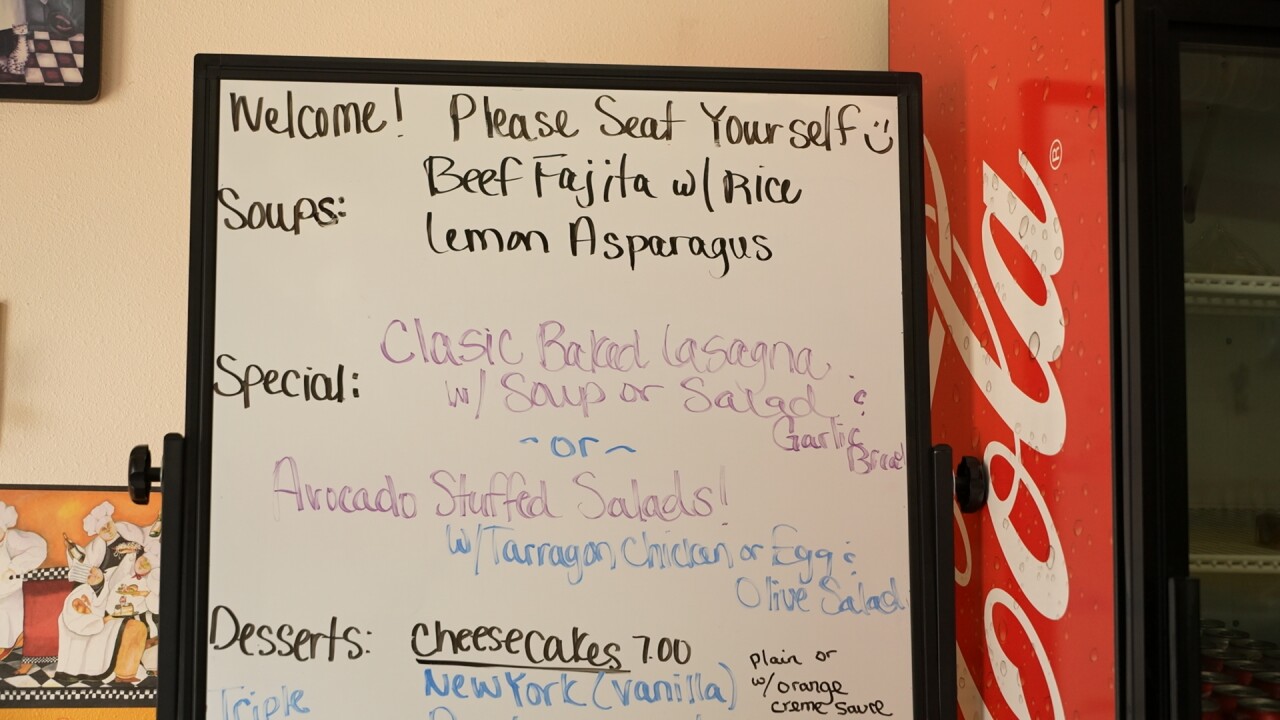 Welcome! Please Seat Yourself :)
Soups: Beef Fajita w/ Rice
Lemon Asparagus
Special: Clasic Baked Lasagna
w/ Soup or Salad &
Garlic
Bread
~or~
Avocado Stuffed Salads!
w/Tarragon Chicken or Egg &
Olive Salad
Desserts: Cheesecakes 7.00
New York (vanilla)
plain or
w/orange
creme sauce
Triple
Cola ®